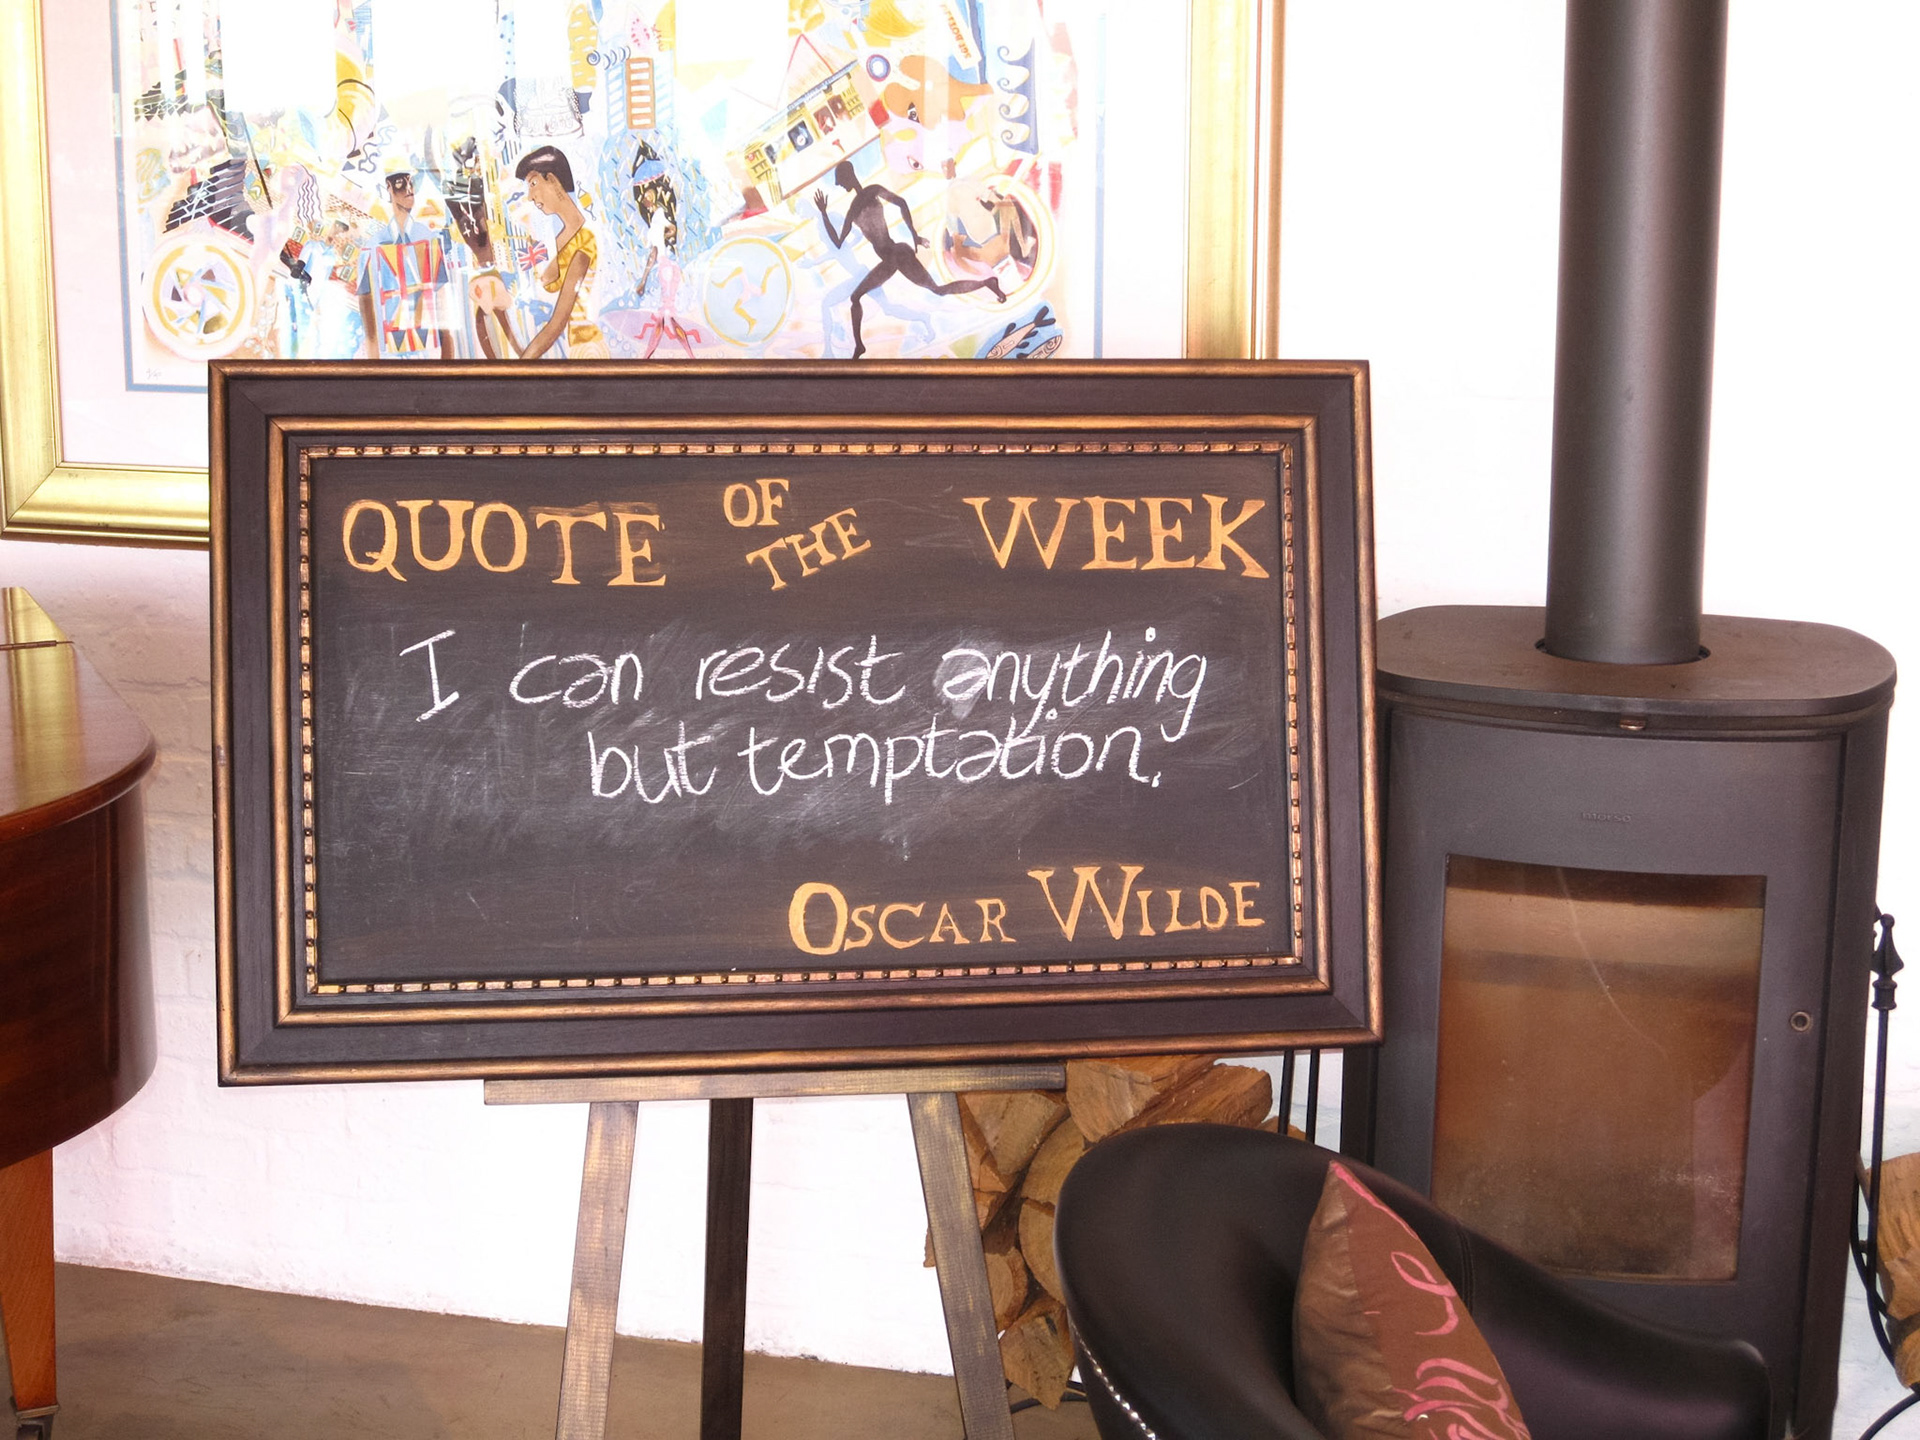 QUOTE OF THE WEEK
I can resist anything
but temptation.
OSCAR WILDE
morsø